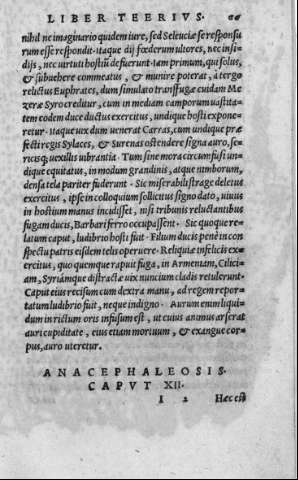 LIBER TEERIVS.
nihil ne imaginario quidem iure, sed Seleuciæ se responsu
rum esse respondit. itaque dij fœderum ultores, nec insi=
dijs, nec uirtuti hostiū defuerunt. iam primum, qui solus,
& subuehere commeatus, & munire poterat, à tergo
relictus Euphrates, dum simulato transfugæ cuidam Me
zeræ Syro creditur, cum in mediam camporum uastita=
tem eodem duce ductus exercitus, undique hosti expone=
retur. Itaque uix dum uenerat Carras, cum undique præ
fecti regis Sylaces, & Surenas ostendere signa auro, se=
ricisque uexillis uibrantia. Tum sine mora circumfusi un=
dique equitatus, in modum grandinis, atque nimborum,
densa tela pariter fuderunt. Sic miserabili strage deletus
exercitus, ipse in colloquium sollicitus signo dato, uiuus
in hostium manus incidisset, nisi tribunis reluctantibus
fugam ducis, Barbari ferro occupassent. Sic quoque re=
latum caput, ludibrio hosti fuit. Filium ducis penè in con
spectu patris eisdem telis operuere. Reliquiæ infelicis ex=
ercitus, quo quemque rapuit fuga, in Armeniam, Cilici=
am, Syriámque distractæ uix nuncium cladis retulerunt.
Caput eius recisum cum dextra manu, ad regem repor=
tatum ludibrio fuit, neque indigno. Aurum enim liqui=
dum in rictum oris infusum est, ut cuius animus arserat
auri cupiditate, eius etiam mortuum, & exangue cor=
pus, auro uteretur.
ANACEPHALEOSIS.
CAPVT XII.
I 2 Hæc est